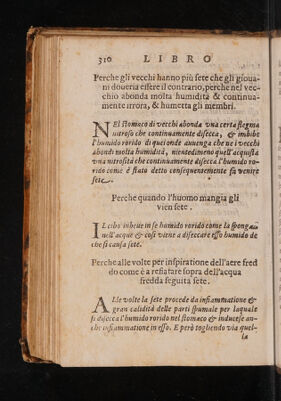 310 LIBRO
Perche gli vecchi hanno più sete che gli gioua-
ni doueria essere il contrario, perche nel vec-
chio abonda molta humidità & continua-
mente irrora, & humetta gli membri.
NEl stomaco di vecchi abonda vna certa flegma
nitrosa che continuamente disecca, & imbibe
l'humido rorido di qui onde auuenga che ne i vecchi
abondi molta humidità, nientedimeno quell'acquista
vna nitrosità che continuamente disecca l'humido ro-
rido come è stato detto consequentemente fa venire
sete.
Perche quando l'huomo mangia gli
vien sete.
IL cibo inbeue in se humido rorido come la sponga
nell'acque & così viene a diseccare esso humido de
che si causa sete.
Perche alle volte per inspiratione dell'aere fred
do come è a refiatare sopra dell'acqua
fredda seguita sete.
ALle volte la sete procede da infiammatione &
gran calidità delle parti spumale per laquale
si disecca l'humido rorido nel stomaco & inducese an-
che infiammatione in esso. E però togliendo via quel-
la